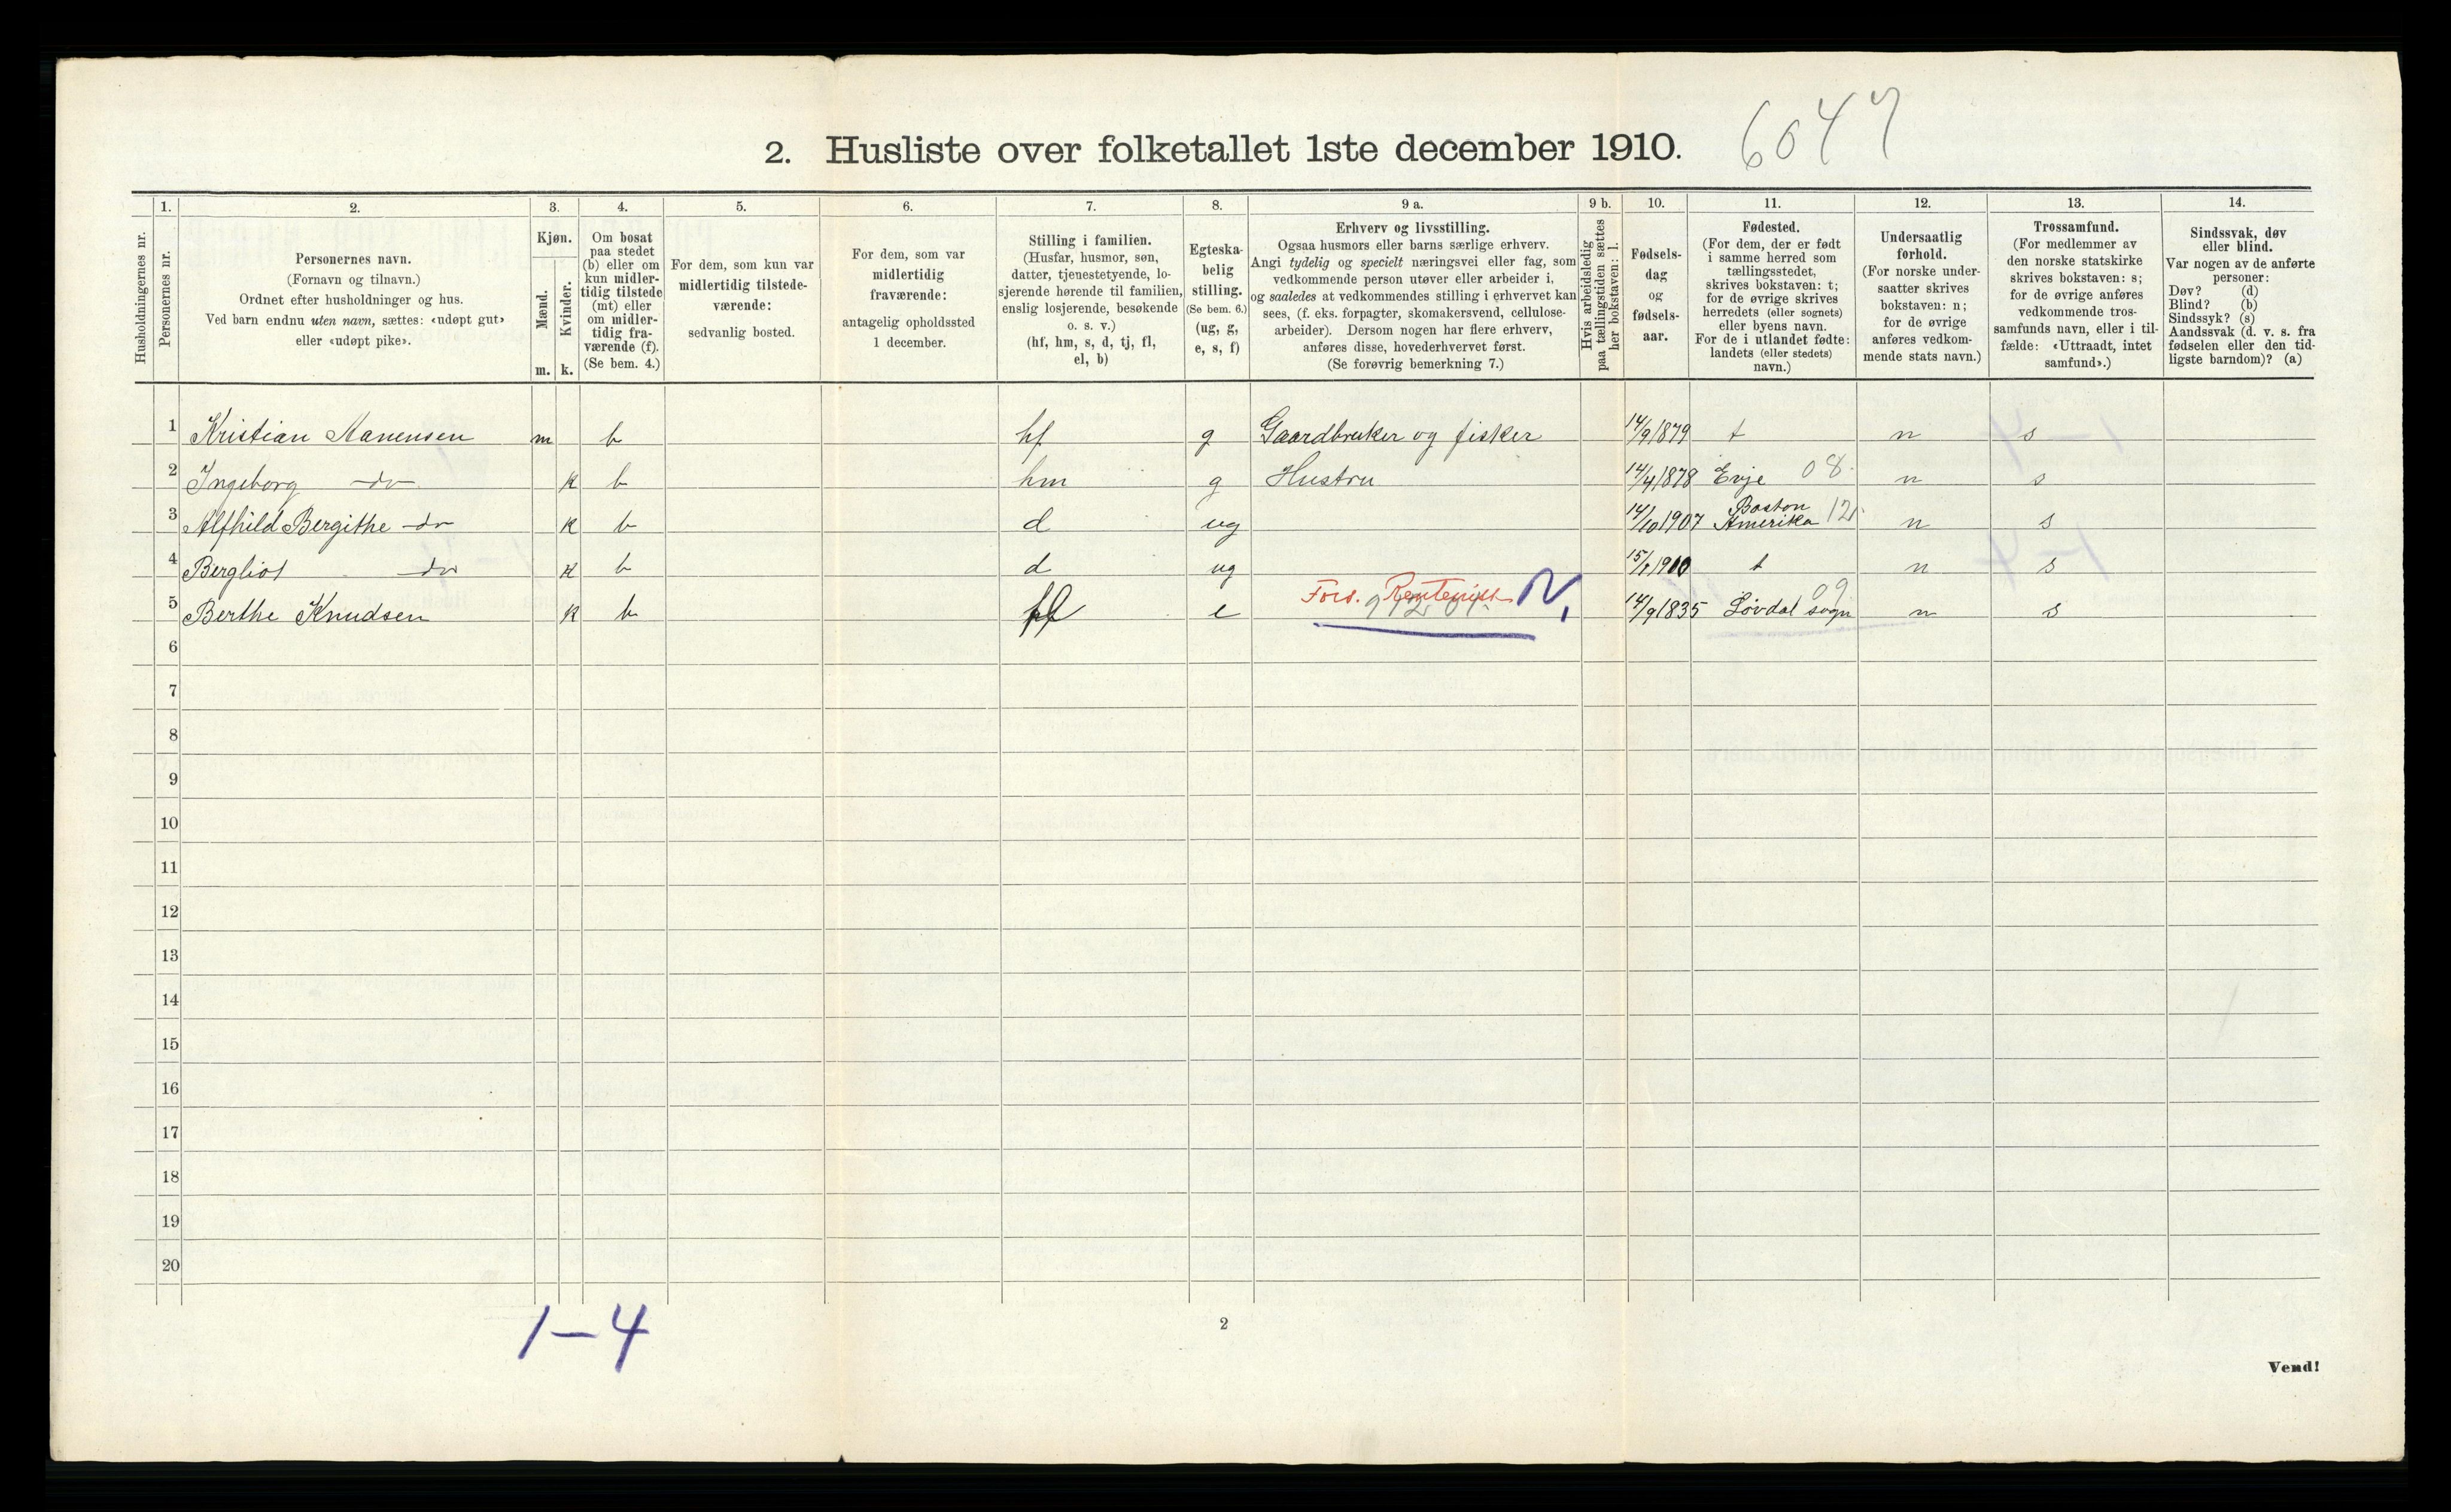 2. Husliste over folketallet 1ste december 1910. 6047
1. 2. 3. 4. 5. 6. 7. 8. 9 a. 9 b. 10. 11. 12. 13. 14.
Husholdningernes nr.
Personernes nr.
Personernes navn.
(Fornavn og tilnavn.)
Ordnet efter husholdninger og hus.
Ved barn endnu uten navn, sættes: «udøpt gut»
eller «udøpt pike».
Kjøn.
Mænd.
Kvinder.
m. k.
Om bosat
paa stedet
(b) eller om
kun midler-
tidig tilstede
(mt) eller
om midler-
tidig fra-
værende (f).
(Se bem. 4.)
For dem, som kun var
midlertidig tilstede-
værende:
sedvanlig bosted.
For dem, som var
midlertidig
fraværende:
antagelig opholdssted
1 december.
Stilling i familien.
(Husfar, husmor, søn,
datter, tjenestetyende, lo-
sjerende hørende til familien,
enslig losjerende, besøkende
o. s. v.)
(hf, hm, s, d, tj, fl,
el, b)
Egteska-
belig
stilling.
(Se bem. 6.)
(ug, g,
e, s, f)
Erhverv og livsstilling.
Ogsaa husmors eller barns særlige erhverv.
Angi tydelig og specielt næringsvei eller fag, som
vedkommende person utøver eller arbeider i,
og saaledes at vedkommendes stilling i erhvervet kan
sees, (f. eks. forpagter, skomakersvend, cellulose-
arbeider). Dersom nogen har flere erhverv,
anføres disse, hovederhvervet først.
(Se forøvrig bemerkning 7.)
Hvis arbeidsledig
paa tællingstiden sættes
her bokstaven: l.
Fødsels-
dag
og
fødsels-
aar.
Fødested.
(For dem, der er født
i samme herred som
tællingsstedet,
skrives bokstaven: t;
for de øvrige skrives
herredets (eller sognets)
eller byens navn.
For de i utlandet fødte:
landets (eller stedets)
navn.)
Undersaatlig
forhold.
(For norske under-
saatter skrives
bokstaven: n;
for de øvrige
anføres vedkom-
mende stats navn.)
Trossamfund.
(For medlemmer av
den norske statskirke
skrives bokstaven: s;
for de øvrige anføres
vedkommende tros-
samfunds navn, eller i til-
fælde: «Uttraadt, intet
samfund».)
Sindssvak, døv
eller blind.
Var nogen av de anførte
personer:
Døv? (d)
Blind? (b)
Sindssyk? (s)
Aandssvak (d. v. s. fra
fødselen eller den tid-
ligste barndom)? (a)
1 Kristian Aanensen m b hf g Gaardbruker og fisker 14/9 1879 t n s
2 Ingeborg do k b hm g Hustru 14/4 1878 Evje 08 n s
3 Alfhild Bergithe do k b d ug 14/10 1907 Boston Amerika 12 n s
4 Bergliot do k b d ug 1910 t n s
5 Berthe Knudsen k b fl e Fors. Rentenist N, 14/9 1835 Løvdal sogn 09 n s
6
7
8
9
10
11
12
13
14
15
16
17
18
19
20
1-4
2
Vend!